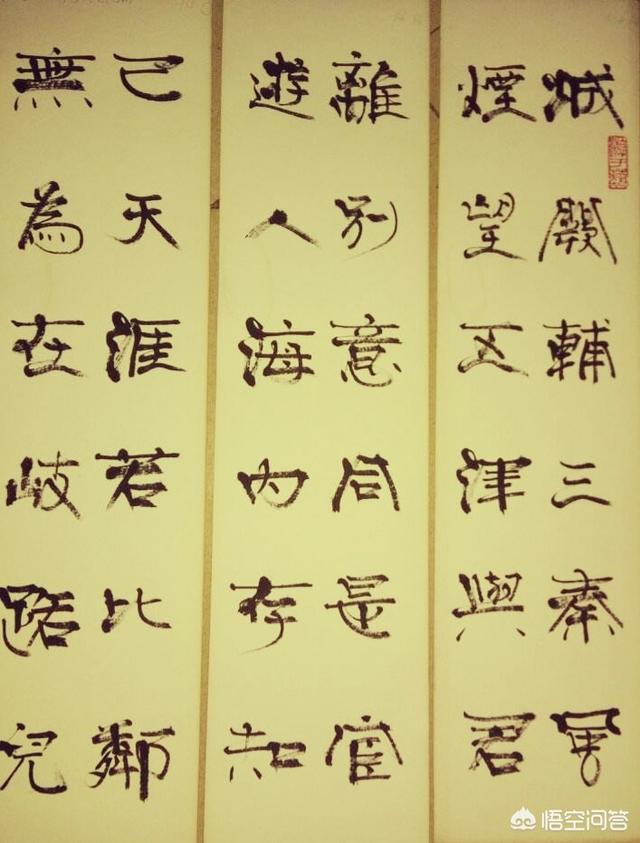 城闕輔三秦風
煙望五津與君
離別意同是宦
遊人海内存知
己天涯若比鄰
無為在歧路兒
悟空问答